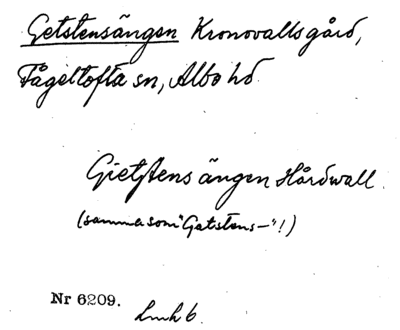 Getstensängen Kronovalls gård,
Fågeltofta sn, Albo hd
Gietstens ängen Hårdwall.
(samma som "Getstens-"!)
Nr 6209.